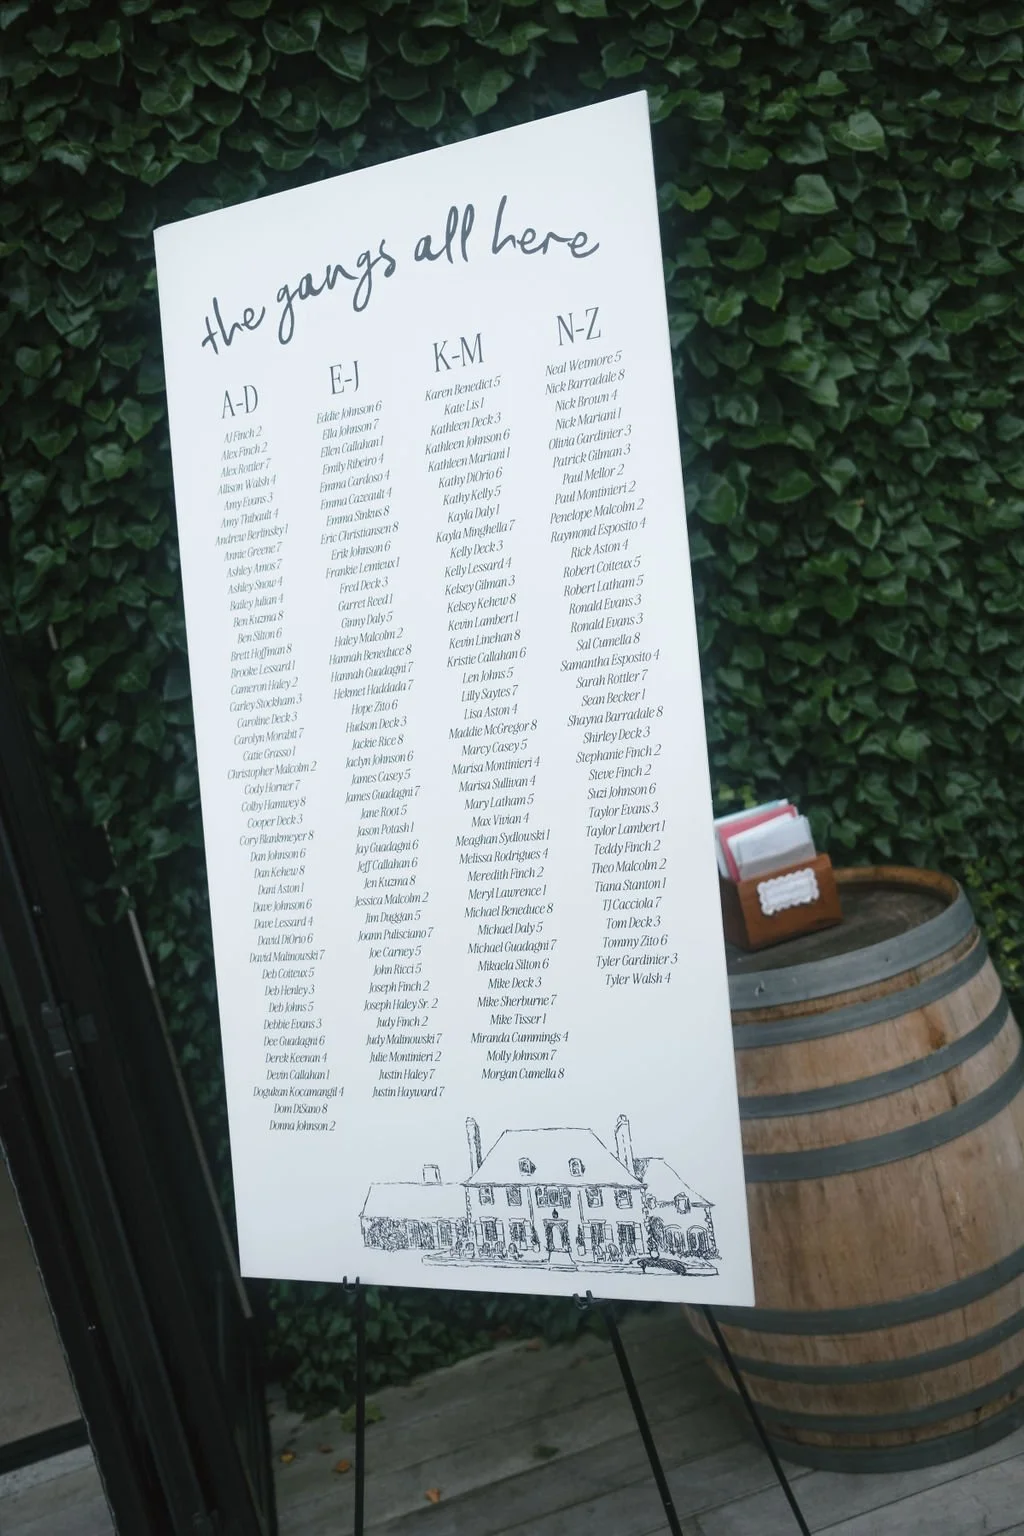 the gangs all here
A-D
AJ Finch 2
Alex Finch 2
Alex Rottler 7
Allison Walsh 4
Amy Evans 3
Amy Thibault 4
Andrew Berlinsky 1
Annie Greene 7
Ashley Amos 7
Ashley Snow 4
Bailey Julian 4
Ben Kuzma 8
Ben Silton 6
Brett Hoffman 8
Brooke Lessard 1
Cameron Haley 2
Carley Stockham 3
Caroline Deck 3
Carolyn Morabit 7
Catie Grasso 1
Christopher Malcolm 2
Cody Horner 7
Colby Hamwey 8
Cooper Deck 3
Cory Blankmeyer 8
Dan Johnson 6
Dan Kehew 8
Dani Aston 1
Dave Johnson 6
Dave Lessard 4
David DiOrio 6
David Malinowski 7
Deb Coiteux 5
Deb Henley 3
Deb Johns 5
Debbie Evans 3
Dee Guadagni 6
Derek Keenan 4
Devin Callahan 1
Dogukan Kocamangil 4
Dom DiSano 8
Donna Johnson 2
E-J
Eddie Johnson 6
Ella Johnson 7
Ellen Callahan 1
Emily Ribeiro 4
Emma Cardoso 4
Emma Cazeault 4
Emma Sinkus 8
Eric Christiansen 8
Erik Johnson 6
Frankie Lemieux 1
Fred Deck 3
Garret Reed 1
Ginny Daly 5
Haley Malcolm 2
Hannah Beneduce 8
Hannah Guadagni 7
Hekmet Haddada 7
Hope Zito 6
Hudson Deck 3
Jackie Rice 8
Jaclyn Johnson 6
James Casey 5
James Guadagni 7
Jane Root 5
Jason Potash 1
Jay Guadagni 6
Jeff Callahan 6
Jen Kuzma 8
Jessica Malcolm 2
Jim Duggan 5
Joann Pulisciano 7
Joe Carney 5
John Ricci 5
Joseph Finch 2
Joseph Haley Sr. 2
Judy Finch 2
Judy Malinowski 7
Julie Montinieri 2
Justin Haley 7
Justin Hayward 7
K-M
Karen Benedict 5
Kate Lis 1
Kathleen Deck 3
Kathleen Johnson 6
Kathleen Mariani 1
Kathy DiOrio 6
Kathy Kelly 5
Kayla Daly 1
Kayla Minghella 7
Kelly Deck 3
Kelly Lessard 4
Kelsey Gilman 3
Kelsey Kehew 8
Kevin Lambert 1
Kevin Linehan 8
Kristie Callahan 6
Len Johns 5
Lilly Saytes 7
Lisa Aston 4
Maddie McGregor 8
Marcy Casey 5
Marisa Montinieri 4
Marisa Sullivan 4
Mary Latham 5
Max Vivian 4
Meaghan Sydlowski 1
Melissa Rodrigues 4
Meredith Finch 2
Meryl Lawrence 1
Michael Beneduce 8
Michael Daly 5
Michael Guadagni 7
Mikaela Silton 6
Mike Deck 3
Mike Sherburne 7
Mike Tisser 1
Miranda Cummings 4
Molly Johnson 7
Morgan Cumella 8
N-Z
Neal Wetmore 5
Nick Barradale 8
Nick Brown 4
Nick Mariani 1
Olivia Gardinier 3
Patrick Gilman 3
Paul Mellor 2
Paul Montinieri 2
Penelope Malcolm 2
Raymond Esposito 4
Rick Aston 4
Robert Coiteux 5
Robert Latham 5
Ronald Evans 3
Ronald Evans 3
Sal Cumella 8
Samantha Esposito 4
Sarah Rottler 7
Sean Becker 1
Shayna Barradale 8
Shirley Deck 3
Stephanie Finch 2
Steve Finch 2
Suzi Johnson 6
Taylor Evans 3
Taylor Lambert 1
Teddy Finch 2
Theo Malcolm 2
Tiana Stanton 1
TJ Cacciola 7
Tom Deck 3
Tommy Zito 6
Tyler Gardinier 3
Tyler Walsh 4